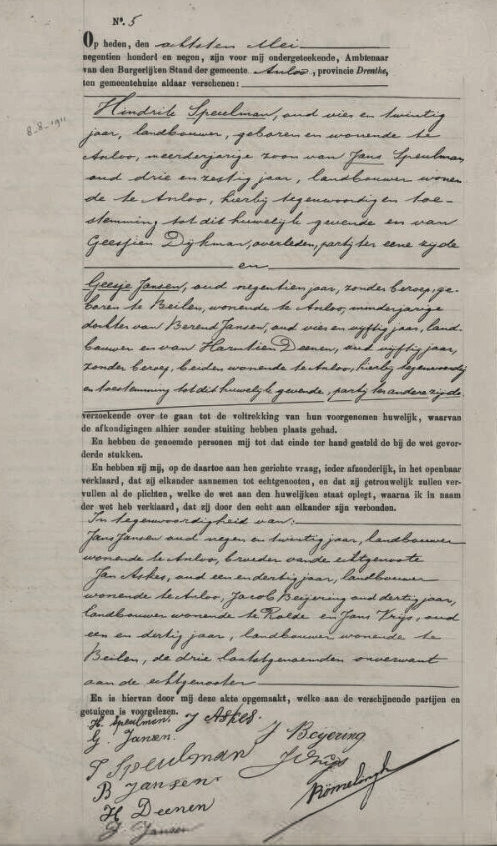 No. 5
Op heden, den achtsten Mei
negentien honderd en negen, zijn voor mij ondergeteekende, Ambtenaar
van den Burgerlijken Stand der gemeente Anloo, provincie Drenthe,
ten gemeentehuize aldaar verschenen:
Hindrik Speulman, oud vier en twintig
jaar, landbouwer, geboren en wonende te
8-8-1911
Anloo, meerderjarige zoon van Jans Speulman
oud drie en zestig jaar, landbouwer wonen-
de te Anloo, hierbij tegenwoordig en toe-
stemming tot dit huwelijk gevende en van
Geesjien Dijkman, overleden, partij ter eene zijde
en
Geesje Jansen, oud negentien jaar, zonder beroep, ge-
boren te Beilen, wonende te Anloo, minderjarige
dochter van Berend Jansen, oud vier en vijftig jaar, land-
bouwer en van Harmtien Deenen, oud vijftig jaar,
zonder beroep, beiden wonende te Anloo, hierbij tegenwoordig
en toestemming tot dit huwelijk gevende, partij ter andere zijde
verzoekende over te gaan tot de voltrekking van hun voorgenomen huwelijk, waarvan
de afkondigingen alhier zonder stuiting hebben plaats gehad.
En hebben de genoemde personen mij tot dat einde ter hand gesteld de bij de wet gevor-
derde stukken.
En hebben zij mij, op de daartoe aan hen gerichte vraag, ieder afzonderlijk, in het openbaar
verklaard, dat zij elkander aannemen tot echtgenooten, en dat zij getrouwelijk zullen ver-
vullen al de plichten, welke de wet aan den huwelijken staat oplegt, waarna ik in naam
der wet heb verklaard, dat zij door den echt aan elkander zijn verbonden.
In tegenwoordigheid van:
Jans Jansen oud negen en twintig jaar, landbouwer
wonende te Anloo, broeder van de echtgenoote
Jan Askes, oud een en dertig jaar, landbouwer
wonende te Anloo, Jacob Beijering oud dertig jaar,
landbouwer wonende te Rolde en Jans Vrijs, oud
een en dertig jaar, landbouwer wonende te
Beilen, de drie laatstgenoemden onverwant
aan de echtgenooten
En is hiervan door mij deze akte opgemaakt, welke aan de verschijnende partijen en
getuigen is voorgelezen.
H. Speulman. J Askes.
G. Jansen. J Beyering
J Speulman J Vrijs
B Jansen
H Deenen
J Jansen